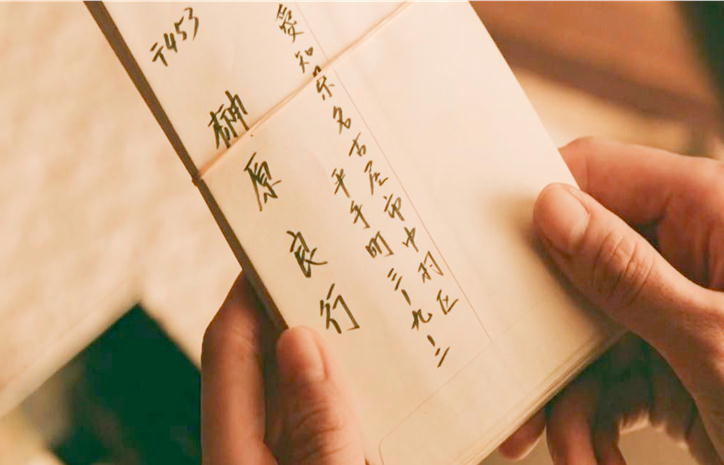 〒453
愛知県名古屋市中村区
平手町三ー九ー二
榊原良行